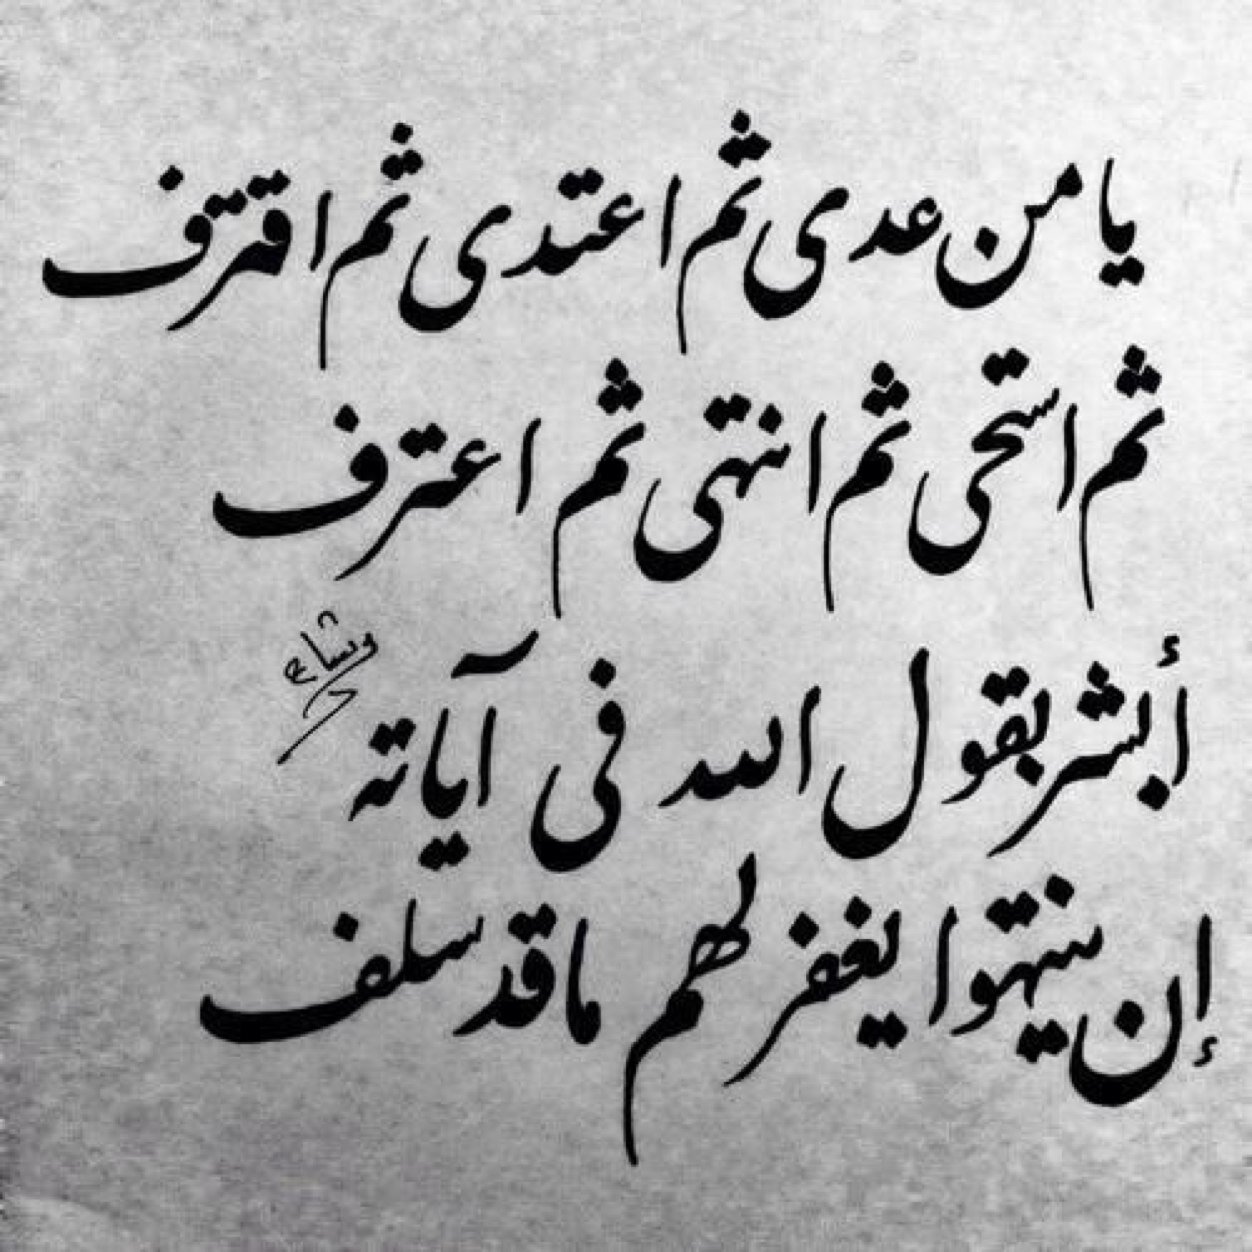 يا من عدى ثم اعتدى ثم اقترف
ثم استحى ثم انتهى ثم اعترف
أبشر بقول الله فى آياته
إن ينتهوا يغفر لهم ما قد سلف
وسام